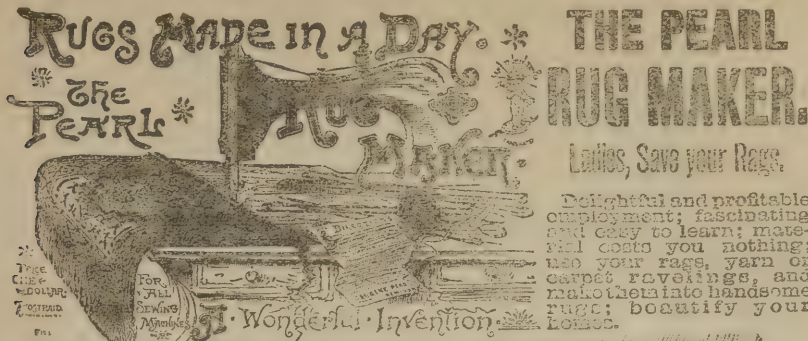 RUGS MADE IN A DAY.
The
PEARL
RUG
MAKER.
PRICE
ONE
DOLLAR
POSTPAID.
FOR
ALL
SEWING
MACHINES
A Wonderful Invention.
THE PEARL
RUG MAKER.
Ladies, Save your Rags.
Delightful and profitable
employment; fascinating
and easy to learn; mate-
rial costs you nothing;
use your rags, yarn or
carpet ravelings, and
make them into handsome
rugs; beautify your
homes.